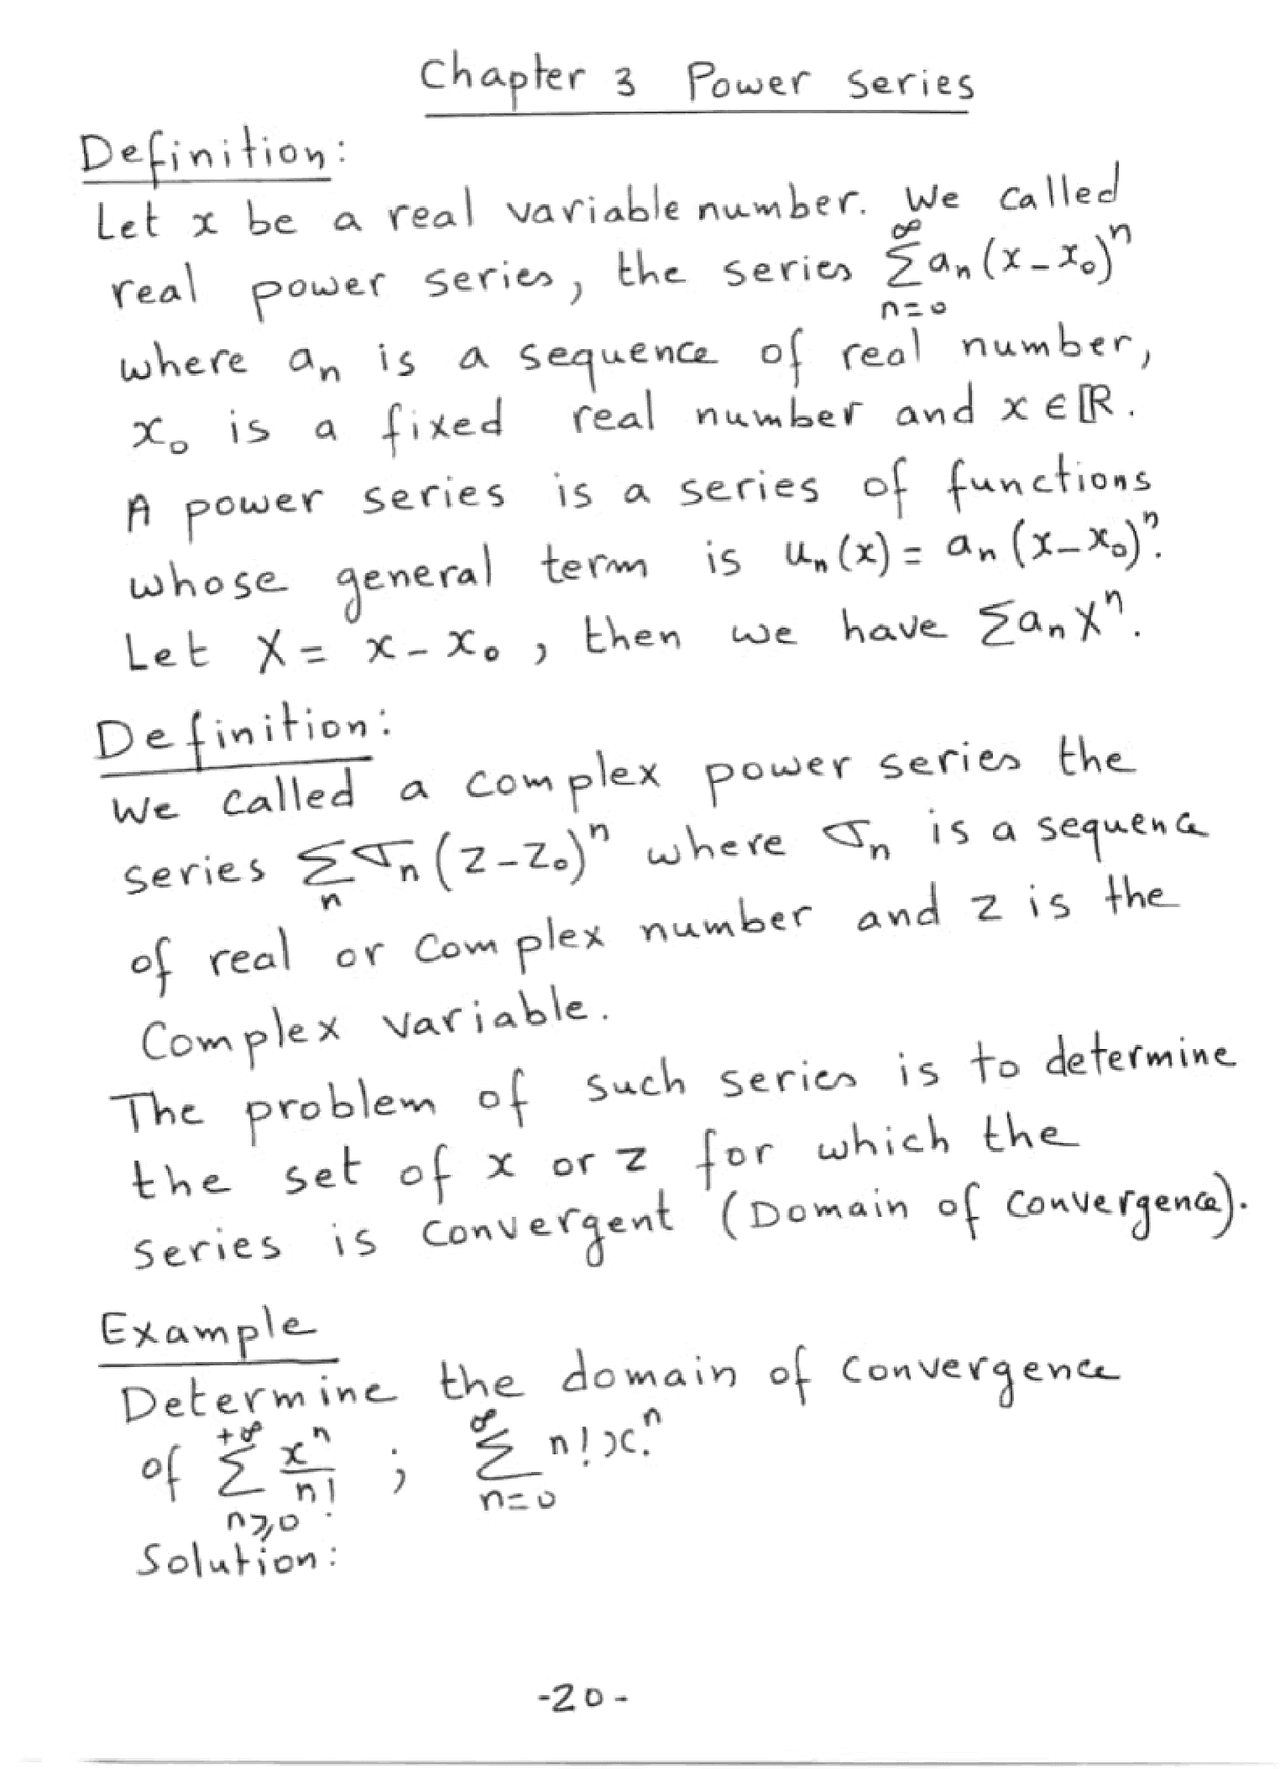 Chapter 3 Power series
Definition:
Let x be a real variable number. We called
real power series, the series ∑_{n=0}^{∞} aₙ(x-x₀)ⁿ
where aₙ is a sequence of real number,
x₀ is a fixed real number and x∈ℝ.
A power series is a series of functions
whose general term is uₙ(x) = aₙ(x-x₀)ⁿ.
Let X = x-x₀, then we have ∑aₙXⁿ.
Definition:
We called a complex power series the
series ∑_{n} σₙ(z-z₀)ⁿ where σₙ is a sequence
of real or complex number and z is the
Complex variable.
The problem of such series is to determine
the set of x or z for which the
series is convergent (Domain of convergence).
Example
Determine the domain of convergence
of ∑_{n≥0}^{+∞} xⁿ/n! ; ∑_{n=0}^{∞} n! xⁿ.
Solution:
-20-